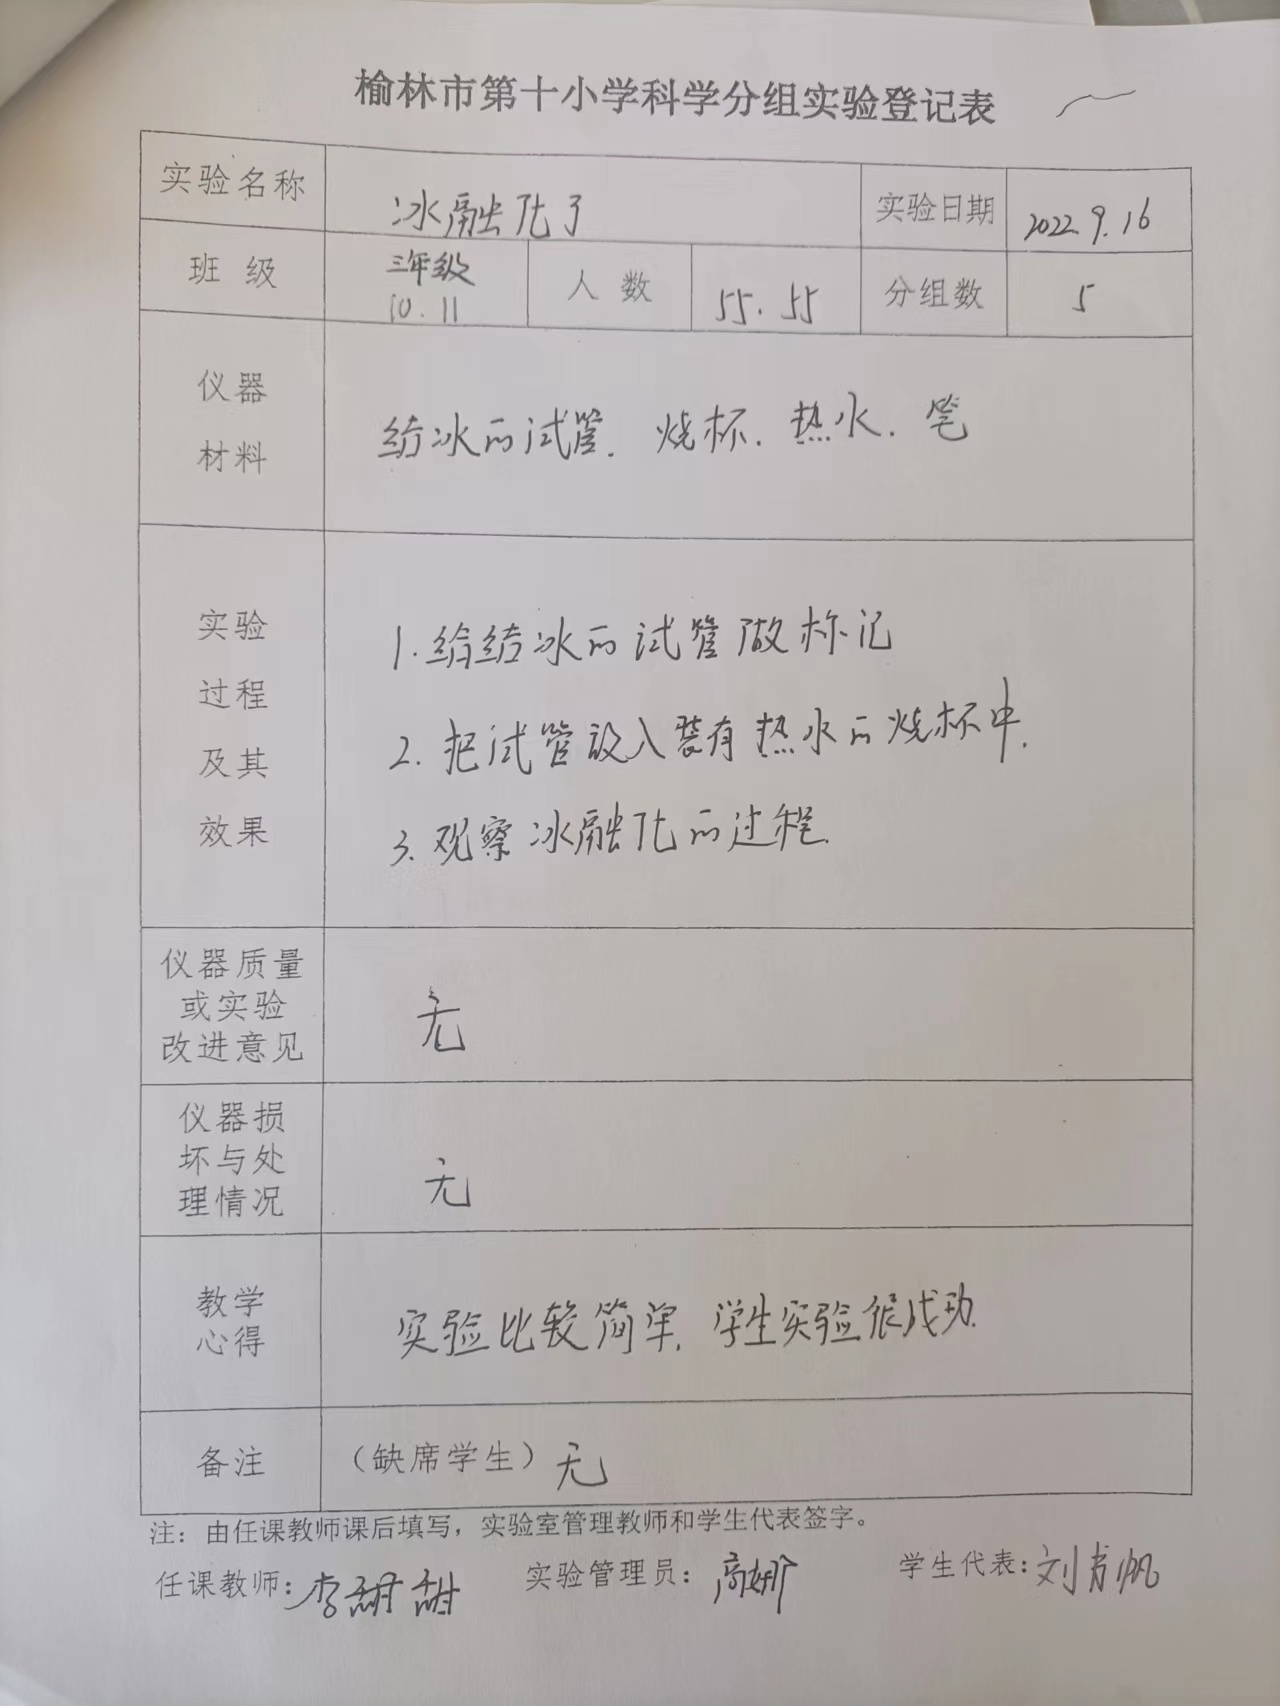 榆林市第十小学科学分组实验登记表
实验名称 冰融化了 实验日期 2022.9.16
班 级 三年级 10.11 人 数 55.55 分组数 5
仪器
材料
结冰的试管. 烧杯. 热水. 笔
实验
过程
及其
效果
1. 给结冰的试管做标记
2. 把试管放入装有热水的烧杯中.
3. 观察冰融化的过程.
仪器质量
或实验
改进意见
无
仪器损
坏与处
理情况
无
教学
心得
实验比较简单. 学生实验很成功.
备注 (缺席学生) 无
注：由任课教师课后填写，实验室管理教师和学生代表签字。
任课教师: 李甜甜 实验管理员: 高娜 学生代表: 刘书帆